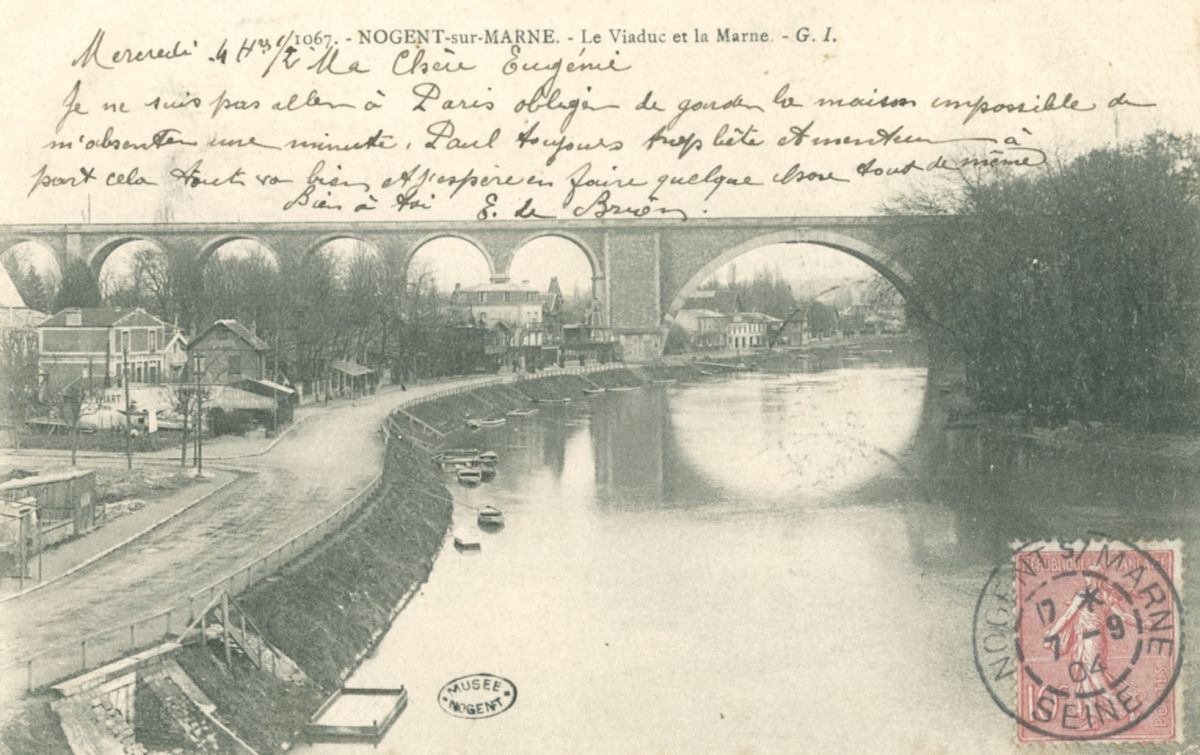 1067. - NOGENT-sur-MARNE. - Le Viaduc et la Marne. - G. I.
Mercredi 4 Hres 1/2 Ma Chère Eugénie
Je ne suis pas allée à Paris obligée de garder la maison impossible de
m'absenter une minute, Paul toujours très bête et menteur à
part cela tout va bien et j'espère en faire quelque chose tout de même
Bien à toi E. de
MUSEE
NOGENT
REPUBLIQUE FRANÇAISE
NOGENT S/ MARNE
7 - 9
04
SEINE
10
POSTES